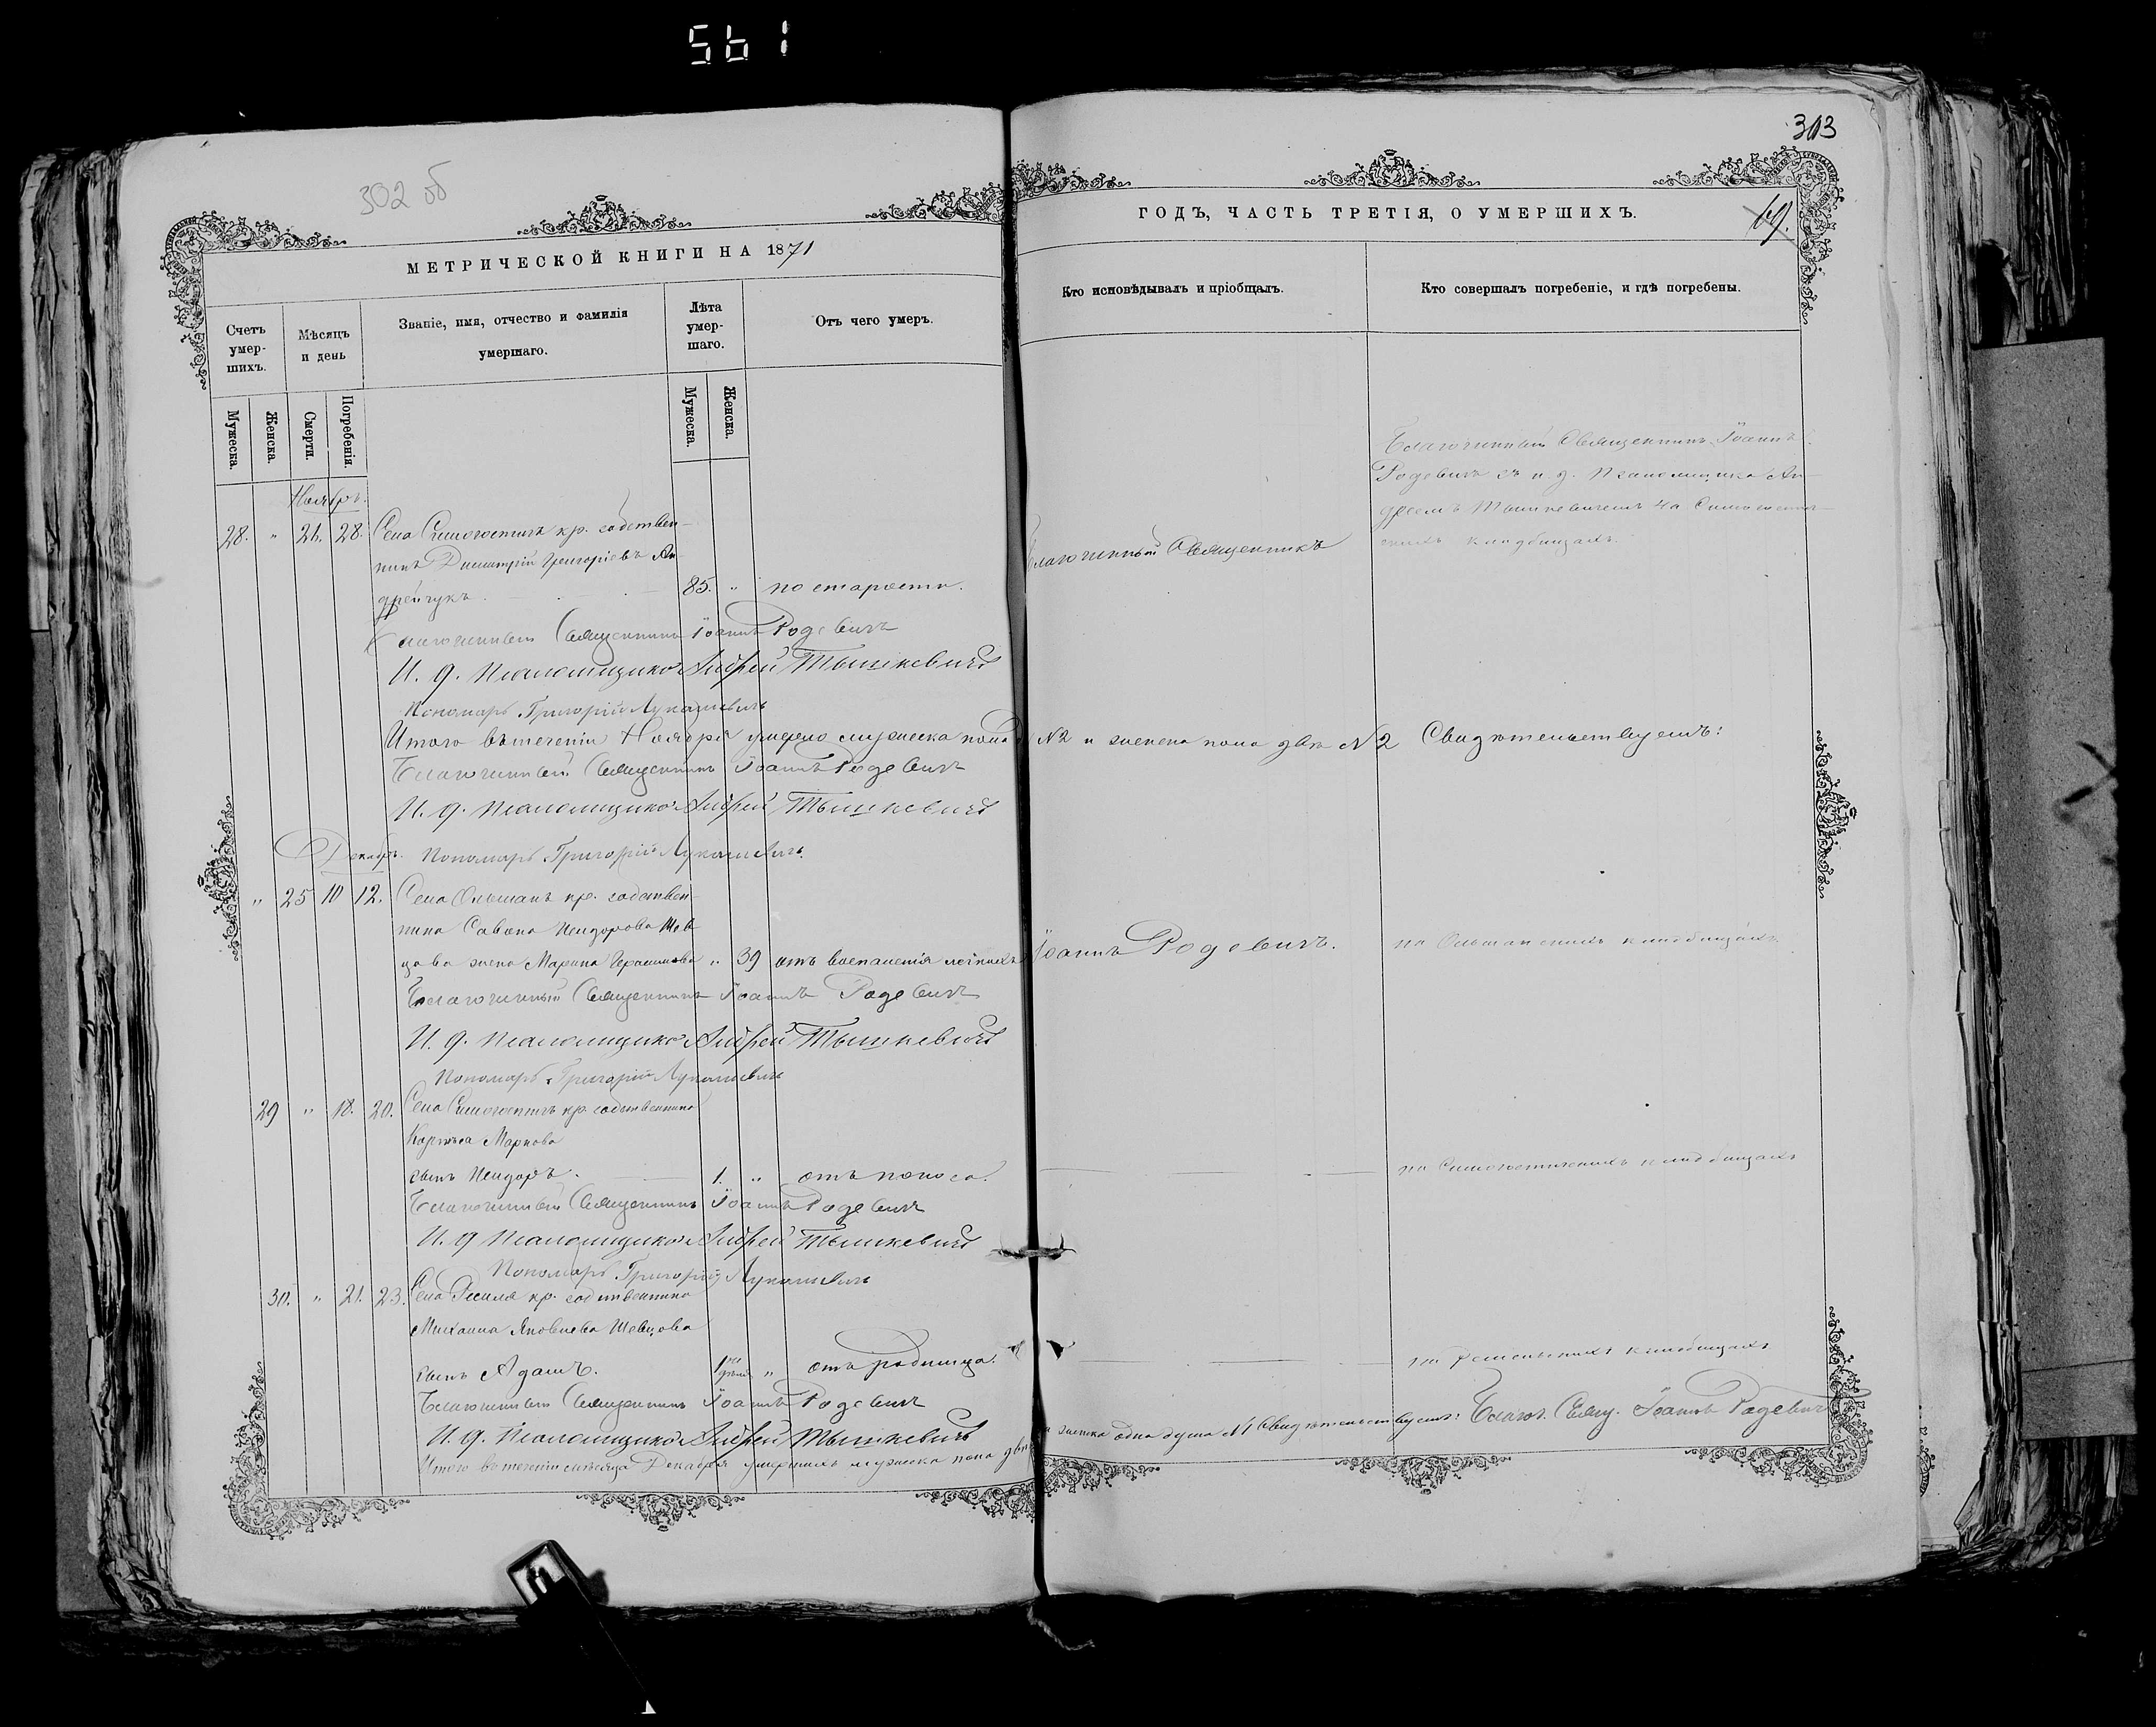 561
302 об
МЕТРИЧЕСКОЙ КНИГИ НА 1871
Счетъ умер-шихъ.
Мѣсяцъ и день
Званіе, имя, отчество и фамилія умершаго.
Лѣта умер-шаго.
Отъ чего умеръ.
Мужеска.
Женска.
Смерти.
Погребенія.
Мужеска.
Женска.
Ноябрь.
28. " 24. 28. Села Симоновичъ кр. собствен-
никъ Димитрій Григоріевъ Ан
дрейчукъ. 85. " по старости.
Благочинный Священникъ Іоаннъ Родевичъ
И. д. Псаломщика Андрей Тышкевичъ
Пономарь Григорій Лукашевичъ
Итого въ теченіи Ноября умерло мужеска пола
Благочинный Священникъ Іоаннъ Родевичъ
И. д. Псаломщика Андрей Тышкевичъ
Декабрь. Пономарь Григорій Лукашевичъ.
" 25 10 12. Села Ольшанъ кр. собствен-
ника Савона Исидорова Шев
цова жена Марина Герасимова " 39 отъ воспаленія легкихъ
Благочинный Священникъ Іоаннъ Родевичъ
И. д. Псаломщика Андрей Тышкевичъ
Пономарь Григорій Лукашевичъ
29 " 18. 20. Села кр. собственника
Маркова
сынъ Исидоръ. 1. " отъ поноса.
Благочинный Священникъ Іоаннъ Родевичъ
И. д Псаломщика Андрей Тышкевичъ
Пономарь Григорій Лукашевичъ
30. " 21. 23. Села кр. собственника
Михаила Яковлева Шевцова
сынъ Адамъ. " отъ родимца.
Благочинный Священникъ Іоаннъ Родевичъ
И. д. Псаломщика Андрей Тышкевичъ
Итого въ теченіи мѣсяца Декабря умершихъ мужеска пола два
303
69.
ГОДЪ, ЧАСТЬ ТРЕТІЯ, О УМЕРШИХЪ.
Кто исповѣдывалъ и пріобщалъ.
Кто совершалъ погребеніе, и гдѣ погребены.
Благочинный Священникъ Іоаннъ
Родевичъ съ и. д. Псаломщика Ан-
дреемъ Тышкевичемъ на
кладбищахъ.
Благочинный Священникъ
№2 и женска пола два №2 Свидѣтельствуемъ:
Іоаннъ Родевичъ.
на Ольшанскихъ кладбищахъ.
на кладбищахъ
на кладбищахъ
женска одна душа №1 Свидѣтельствуемъ: Благоч. Свящ. Іоаннъ Родевичъ